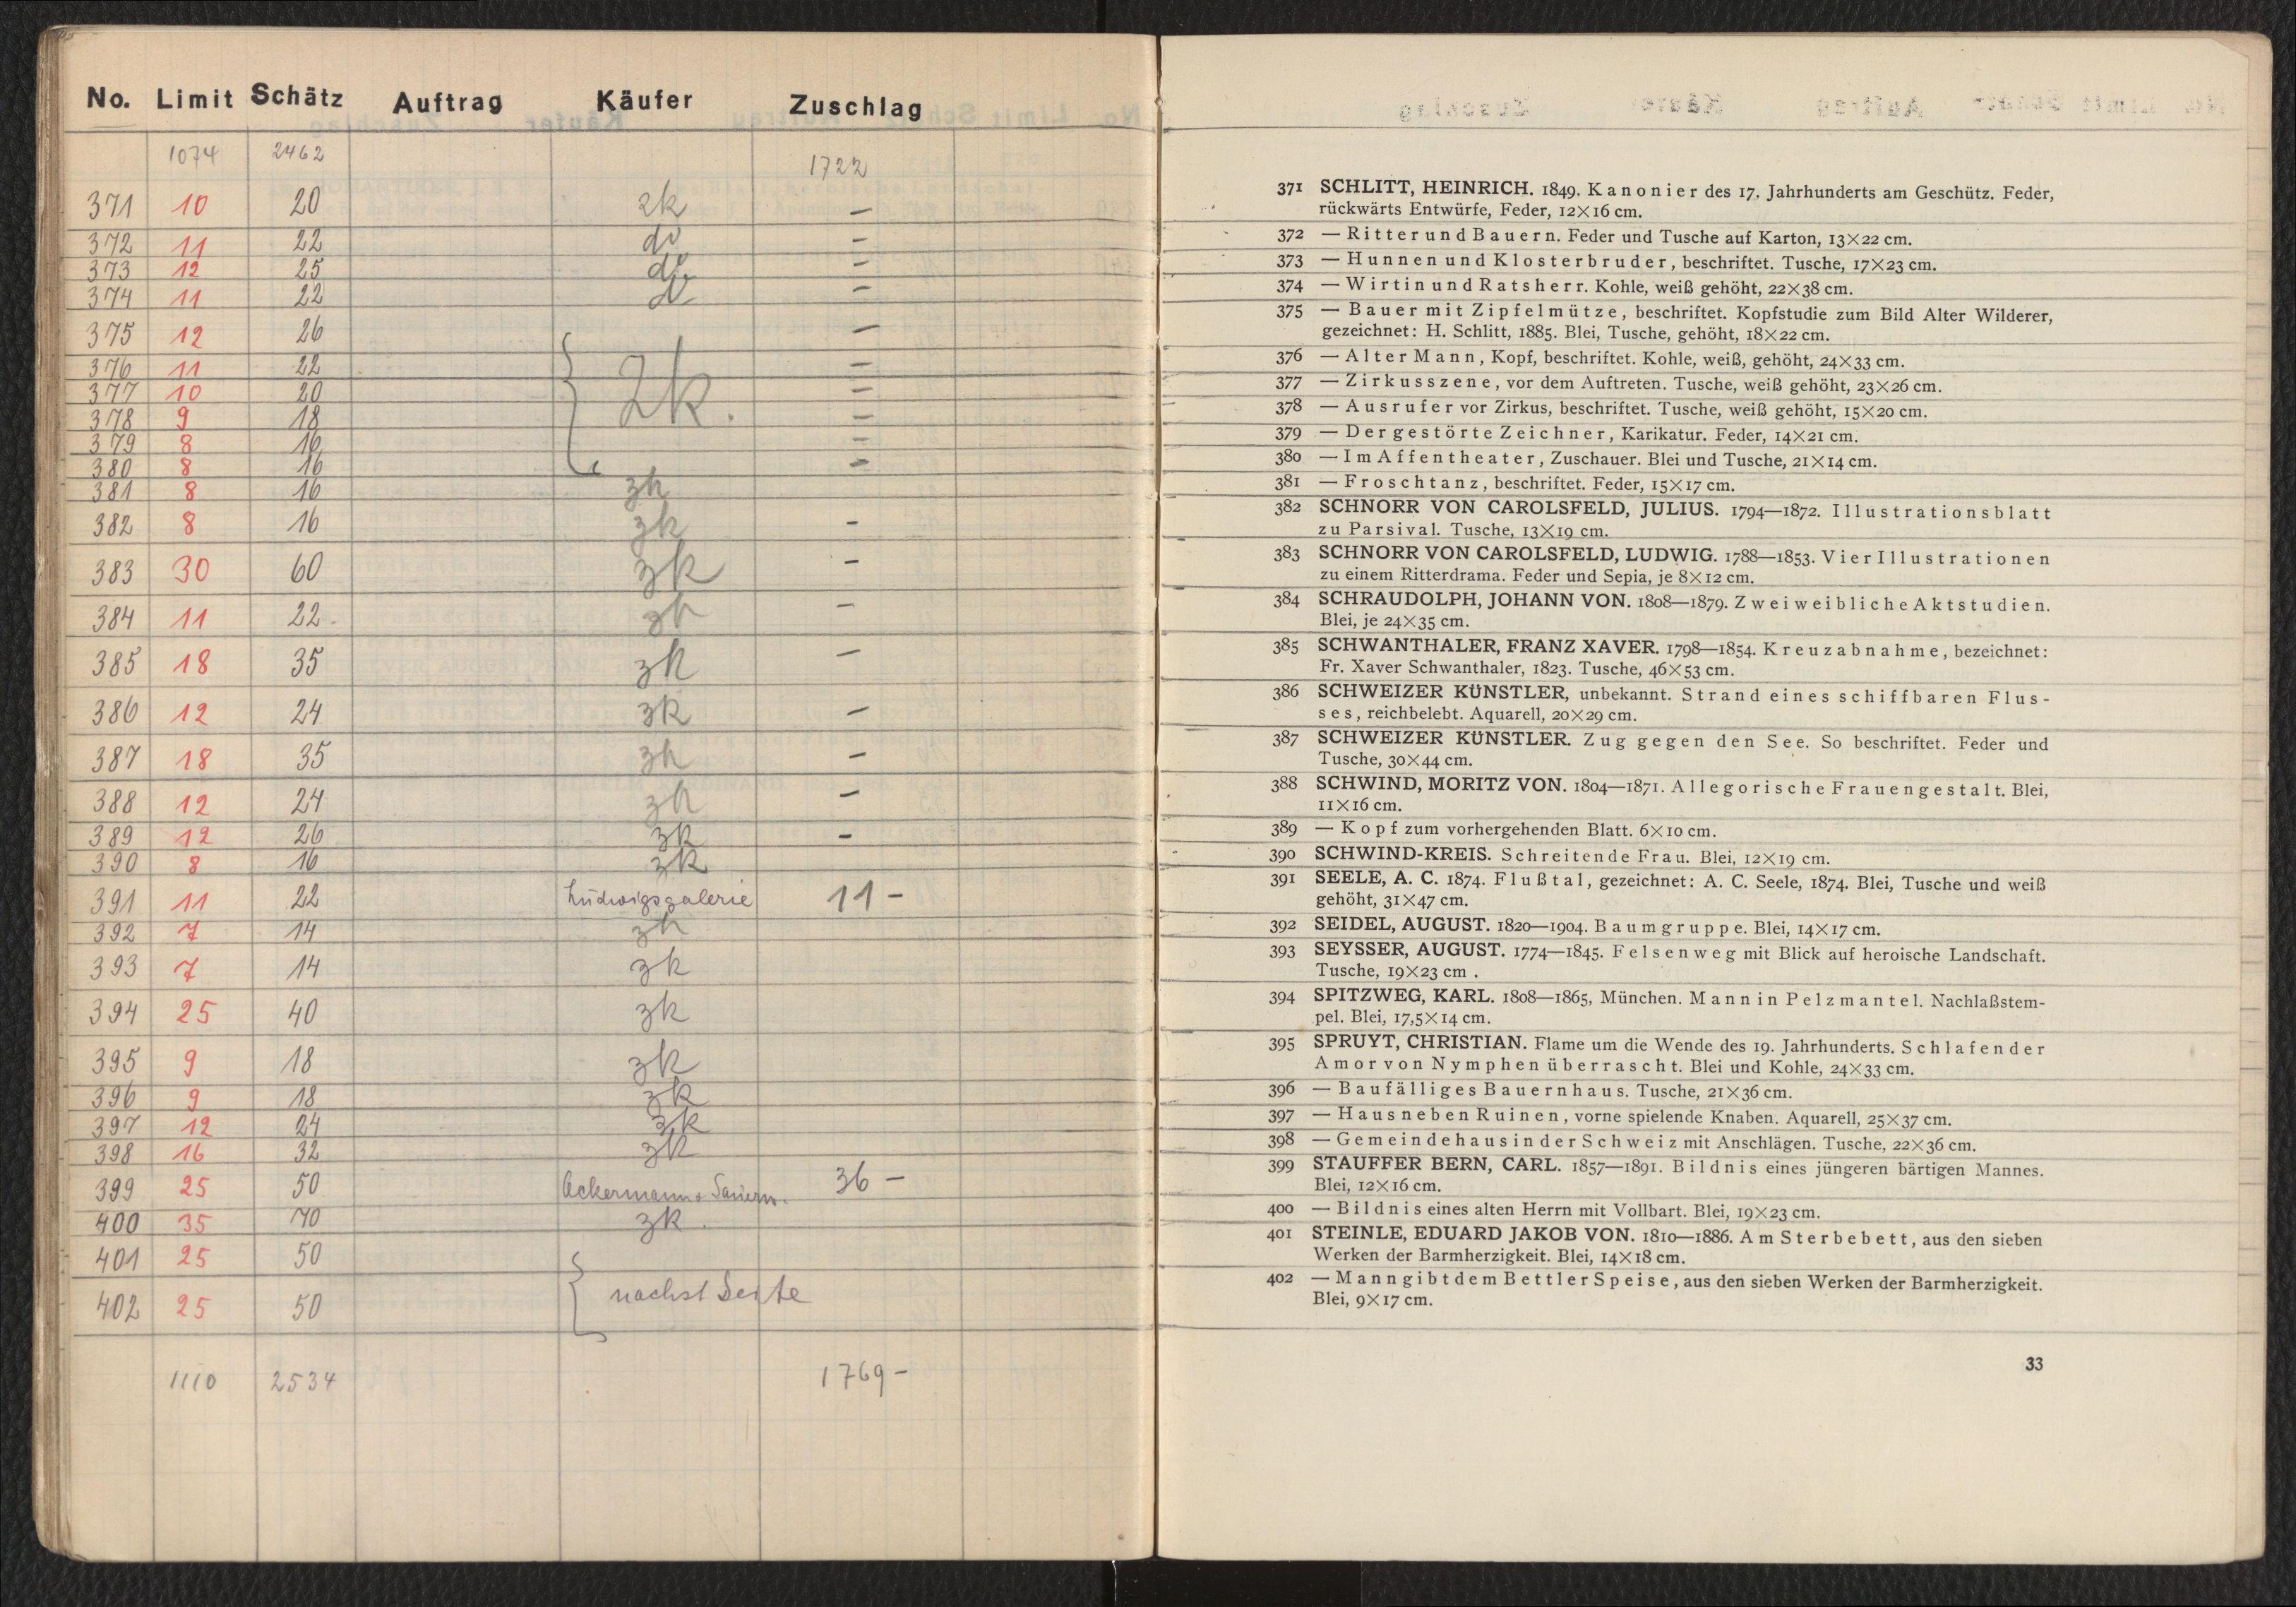 No. Limit Schätz Auftrag Käufer Zuschlag
1074 2462 1722
371 10 20 zk —
372 11 22 do —
373 12 25 do —
374 11 22 do —
375 12 26 —
376 11 22 —
377 10 20 zk. —
378 9 18 —
379 8 16 —
380 8 16 —
381 8 16 zk
382 8 16 zk —
383 30 60 zk —
384 11 22 zk —
385 18 35 zk —
386 12 24 zk —
387 18 35 zk —
388 12 24 zk —
389 12 26 zk —
390 8 16 zk
391 11 22 Ludwigsgalerie 11 —
392 7 14 zk
393 7 14 zk
394 25 40 zk
395 9 18 zk
396 9 18 zk
397 12 24 zk
398 16 32 zk
399 25 50 Ackermann & 36 —
400 35 70 zk.
401 25 50
402 25 50 nächst Seite
1110 2534 1769 —
371 SCHLITT, HEINRICH. 1849. Kanonier des 17. Jahrhunderts am Geschütz. Feder,
rückwärts Entwürfe, Feder, 12×16 cm.
372 — Ritter und Bauern. Feder und Tusche auf Karton, 13×22 cm.
373 — Hunnen und Klosterbruder, beschriftet. Tusche, 17×23 cm.
374 — Wirtin und Ratsherr. Kohle, weiß gehöht, 22×38 cm.
375 — Bauer mit Zipfelmütze, beschriftet. Kopfstudie zum Bild Alter Wilderer,
gezeichnet: H. Schlitt, 1885. Blei, Tusche, gehöht, 18×22 cm.
376 — Alter Mann, Kopf, beschriftet. Kohle, weiß, gehöht, 24×33 cm.
377 — Zirkusszene, vor dem Auftreten. Tusche, weiß gehöht, 23×26 cm.
378 — Ausrufer vor Zirkus, beschriftet. Tusche, weiß gehöht, 15×20 cm.
379 — Der gestörte Zeichner, Karikatur. Feder, 14×21 cm.
380 — Im Affentheater, Zuschauer. Blei und Tusche, 21×14 cm.
381 — Froschtanz, beschriftet. Feder, 15×17 cm.
382 SCHNORR VON CAROLSFELD, JULIUS. 1794—1872. Illustrationsblatt
zu Parsival. Tusche, 13×19 cm.
383 SCHNORR VON CAROLSFELD, LUDWIG. 1788—1853. Vier Illustrationen
zu einem Ritterdrama. Feder und Sepia, je 8×12 cm.
384 SCHRAUDOLPH, JOHANN VON. 1808—1879. Zwei weibliche Aktstudien.
Blei, je 24×35 cm.
385 SCHWANTHALER, FRANZ XAVER. 1798—1854. Kreuzabnahme, bezeichnet:
Fr. Xaver Schwanthaler, 1823. Tusche, 46×53 cm.
386 SCHWEIZER KÜNSTLER, unbekannt. Strand eines schiffbaren Flus-
ses, reichbelebt. Aquarell, 20×29 cm.
387 SCHWEIZER KÜNSTLER. Zug gegen den See. So beschriftet. Feder und
Tusche, 30×44 cm.
388 SCHWIND, MORITZ VON. 1804—1871. Allegorische Frauengestalt. Blei,
11×16 cm.
389 — Kopf zum vorhergehenden Blatt. 6×10 cm.
390 SCHWIND-KREIS. Schreitende Frau. Blei, 12×19 cm.
391 SEELE, A. C. 1874. Flußtal, gezeichnet: A. C. Seele, 1874. Blei, Tusche und weiß
gehöht, 31×47 cm.
392 SEIDEL, AUGUST. 1820—1904. Baumgruppe. Blei, 14×17 cm.
393 SEYSSER, AUGUST. 1774—1845. Felsenweg mit Blick auf heroische Landschaft.
Tusche, 19×23 cm .
394 SPITZWEG, KARL. 1808—1865, München. Mann in Pelzmantel. Nachlaßstem-
pel. Blei, 17,5×14 cm.
395 SPRUYT, CHRISTIAN. Flame um die Wende des 19. Jahrhunderts. Schlafender
Amor von Nymphen überrascht. Blei und Kohle, 24×33 cm.
396 — Baufälliges Bauernhaus. Tusche, 21×36 cm.
397 — Haus neben Ruinen, vorne spielende Knaben. Aquarell, 25×37 cm.
398 — Gemeindehaus in der Schweiz mit Anschlägen. Tusche, 22×36 cm.
399 STAUFFER BERN, CARL. 1857—1891. Bildnis eines jüngeren bärtigen Mannes.
Blei, 12×16 cm.
400 — Bildnis eines alten Herrn mit Vollbart. Blei, 19×23 cm.
401 STEINLE, EDUARD JAKOB VON. 1810—1886. Am Sterbebett, aus den sieben
Werken der Barmherzigkeit. Blei, 14×18 cm.
402 — Mann gibt dem Bettler Speise, aus den sieben Werken der Barmherzigkeit.
Blei, 9×17 cm.
33